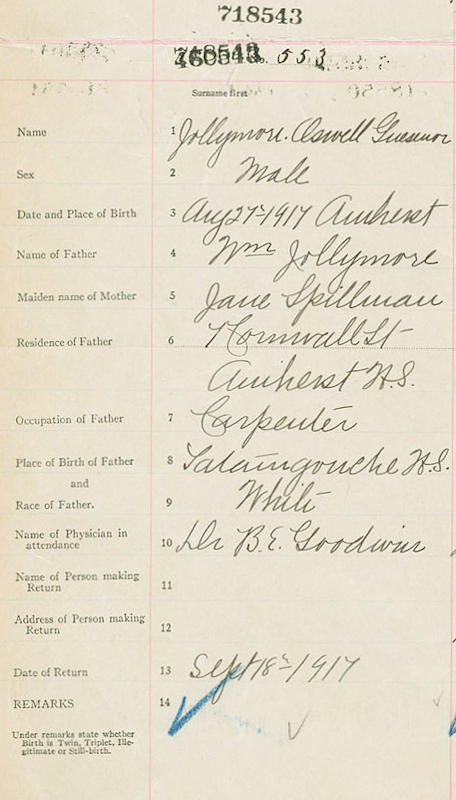 718543
553
Surname first
Name 1 Jollymore. Oswell
Sex 2 Male
Date and Place of Birth 3 Aug 27th 1917 Amherst
Name of Father 4 Wm Jollymore
Maiden name of Mother 5 Jane Spillman
Residence of Father 6 Cornwall St
Amherst N.S.
Occupation of Father 7 Carpenter
Place of Birth of Father 8 Tatamgouche N.S.
and
Race of Father. 9 White
Name of Physician in
attendance 10 Dr B.E. Goodwin
Name of Person making
Return 11
Address of Person making
Return 12
Date of Return 13 Sept 18th 1917
REMARKS 14
Under remarks state whether
Birth is Twin, Triplet, Ille-
gitimate or Still-birth.